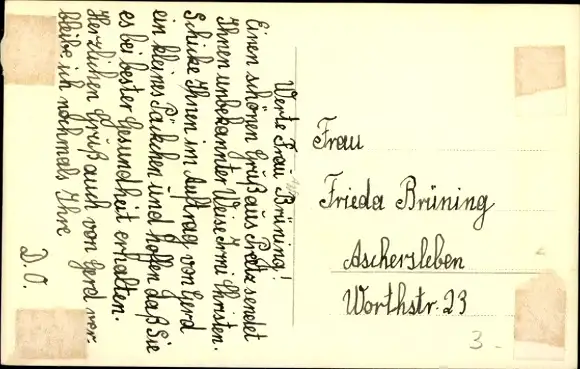 Werte Frau Brüning!
Einen schönen Gruß aus sendet
Ihnen unbekannter Weise Irmi Christen.
Schicke Ihnen im Auftrag von Gerd
ein kleines Päckchen und hoffen daß Sie
es bei bester Gesundheit erhalten.
Herzlichen Gruß auch von Gerd ver-
bleibe ich nochmals Ihre
D. O.
Frau
Frieda Brüning
Aschersleben
Worthstr. 23
3 -